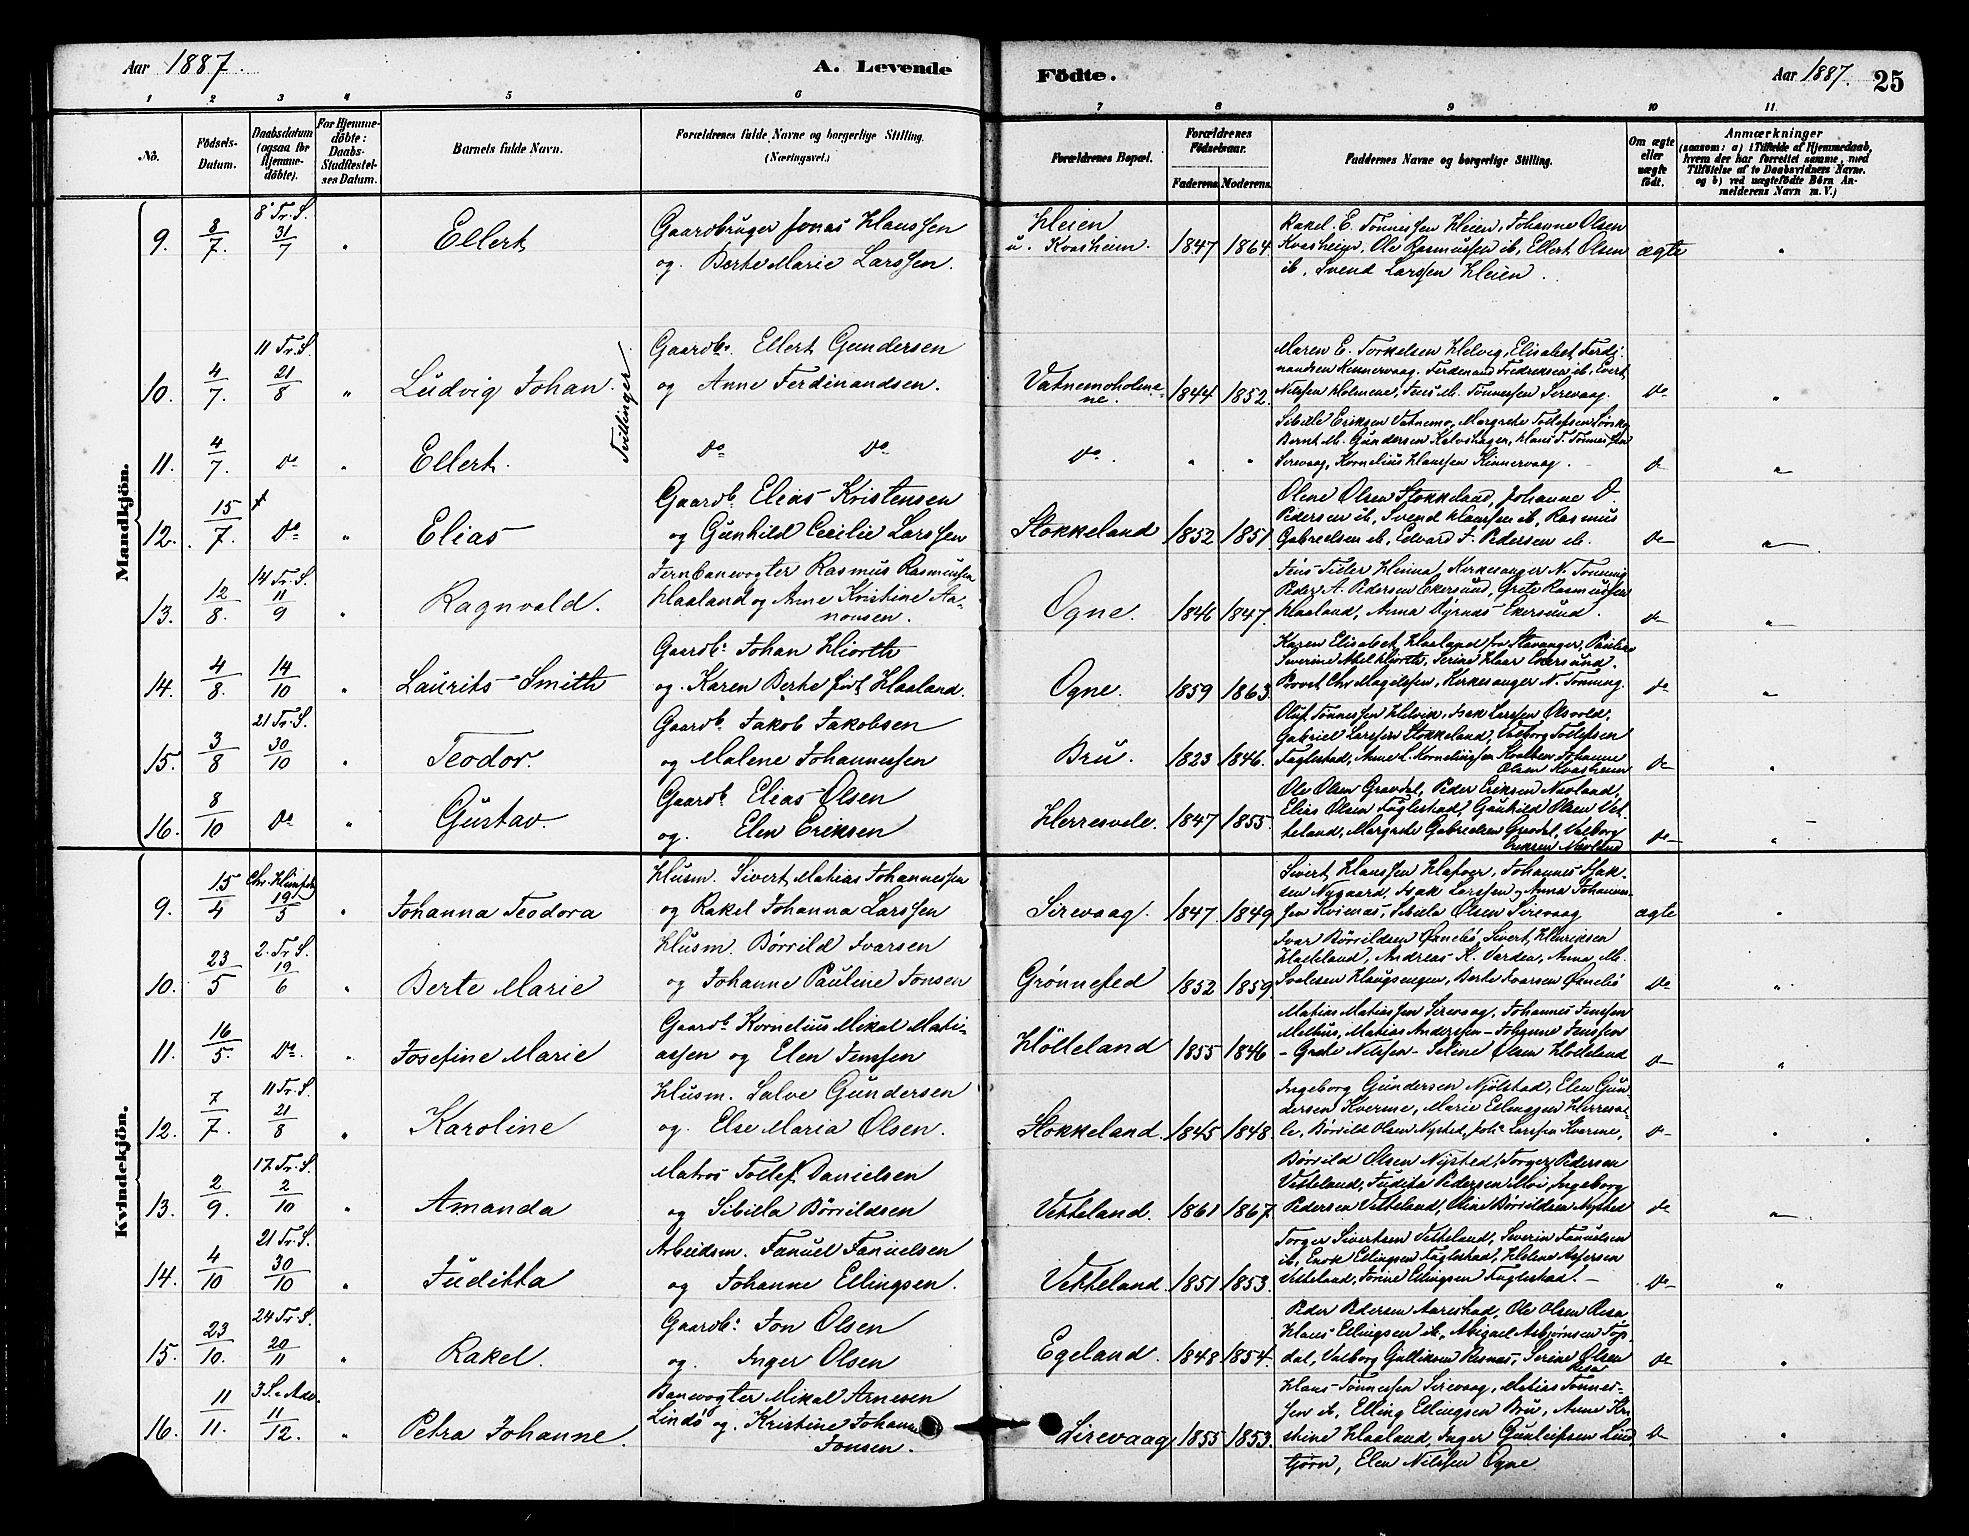 Aar 1887.
A. Levende
Födte.
Aar 1887. 25
1 2 3 4 5 6 7 8 9 10 11
No.
Födsels-Datum.
Daabsdatum (ogsaa for Hjemmedöbte).
For Hjemmedöbte: Daabs-Stadfestelses Datum.
Barnets fulde Navn.
Forældrenes fulde Navne og borgerlige Stilling. (Næringsvei.)
Forældrenes Bopæl.
Forældrenes Födselsaar.
Faderens. Moderens.
Faddernes Navne og borgerlige Stilling.
Om ægte eller uægte födt.
Anmærkninger
(saasom: a) i Tilfælde af Hjemmedaab, hvem der har forrettet samme, med Tilföielse af to Daabsvidners Navne. og b) ved uægtefödte Börn Anmelderens Navn m. V.)
Mandkjön.
9. 8/7 8 Tr. S. 31/7 " Ellert
Gaardbruger Jonas Hanssen
og Berte Marie Larssen.
Heien
u. Kvasheim. 1847 1864
Rakel E. Tønnessen Heien, Johanne Olsen
Kvasheim, Ole Rasmussen ib, Ellert Olsen
ib, Svend Larssen Heien.
ægte "
10. 4/7 11 Tr. S. 21/8 " Ludvig Johan. Tvillinger
Gaardb. Ellert Gundersen
og Anne Ferdinandsen.
Vatnemoholmene. 1844 1852.
Maren E. Torkelsen Helvig, Elisabet Ferdinandsen Kinnervaag. Ferdinand Fredriksen ib. Evert
Nilssen Holmene, Jens M. Tønnessen Sirevaag.
do "
11. 4/7 do " Ellert.
do do
do. " "
Sibille Eriksen Vatnemo, Margrete Tollefsen
Bernt M. Gundersen
Sirevaag, Kornelius Hanssen Kinnervaag.
do "
12. 15/7 do " Elias
Gaardb. Elias Kristensen
og Gunhild Cecilie Larssen
Stokkeland 1852 1851.
Olene Olsen Stokkeland, Johanne O.
Pedersen ib, Svend Hanssen ib, Rasmus
Gabrielsen ib, Edvard F. Pedersen ib.
do "
13. 12/8. 14 Tr. S. 11/9 " Ragnvald.
Jernbanevogter Rasmus Rasmussen
Haaland og Anne Kristine Aanonsen.
Ogne. 1846 1847.
Kirkesanger N. Tønning
Peder A. Pedersen Ekersund, Grete Rasmussen
Haaland, Anna Ekersund.
do "
14. 4/8. 14/10 " Laurits Smith
Gaardb. Johan Hiorth
og. Karen Berte født Haaland.
Ogne. 1859 1863.
Karen Elisabet Haaland fra Stavanger,
Severine Abel Hiorth, Serine Haar Ekersund.
Provst Chr Magelssen, Kirkesanger N. Tønning.
do "
15. 3/8 21 Tr. S. 30/10 " Teodor.
Gaardb. Jakob Jakobsen
og Malene Johannessen
Bru. 1823 1846.
Oluf Tønnessen Helvik, Isak Larssen
Gabriel Larssen Stokkeland, Valborg Tollefsen
Fuglestad, Anne L. Korneliussen Johanne
Olsen Kvasheim
do "
16. 8/10 do " Gustav.
Gaardb. Elias Olsen
og. Elen Eriksen
Herresvele. 1847 1855.
Ole Olsen Gravdal, Peder Eriksen Nevland,
Elias Olsen Fuglestad, Gunhild Olsen Vetteland, Margrete Gabrielsen Gravdal, Valborg
Eriksen Nevland
do "
Kvindekjön.
9. 15/4 Chr. Himf.dag 19/5 " Johanna Teodora
Husm. Sivert Matias Johannessen
og Rakel Johanna Larssen
Sirevaag. 1847. 1849
Sivert Hanssen Johannes Isaksen Nygaard, Isak Larssen, Anna Johannessen Sibille Olsen Sirevaag
ægte "
10. 23/5 2. Tr. S. 19/6 " Berte Marie
Husm. Børrild Ivarsen
og Johanne Pauline Jonsen
Grønnested 1852 1859
Ivar Børrildsen Sivert Henriksen
Andreas K. Varden, Anna M.
Haugsengen, Berte Ivarsen
do "
11. 16/5. do. " Josefine Marie
Gaardb. Kornelius Mikal Matiassen og Elen Jenssen
Hølleland 1855 1846
Matias Matiassen Sirevaag, Johannes Jenssen
Melhus, Matias Anderssen - Johanne Jenssen
- Grete Nilssen - Selene Olsen Hølleland
do "
12. 7/7. 11 Tr. S. 21/8 " Karoline
Husm. Salve Gundersen
og. Else Maria Olsen.
Stokkeland. 1845 1848.
Ingeborg Gundersen Njølstad, Elen Gundersen Kverme, Marie Ellingsen Herresvele, Børrild Olsen Nysted, Larssen Kverme,
do "
13. 2/9. 17 Tr. S. 2/10 " Amanda
Matros Tollef Danielsen
og Sibilla Børrildsen
Vetteland. 1861 1867.
Børrild Olsen Nysted, Torger Pedersen
Vetteland, Judita Pedersen Ingeborg
Pedersen Vetteland, Oline Børrildsen Nysted
do "
14. 4/10 21 Tr. S. 30/10 " Juditta
Arbeidsm. Fanuel Fanuelsen
og Johanne Ellingsen.
Vetteland. 1851 1853.
Torger Sivertsen Vetteland, Severin Fanuelsen
ib, Enok Ellingsen Fuglestad, Helene
Vetteland, Ellingsen Fuglestad. -
do "
15. 23/10. 24 Tr. S. 20/11 " Rakel.
Gaardb. Jon Olsen
og. Inger Olsen
Egeland. 1848 1854.
Peder Pedersen Aarestad, Ole Olsen
Hans Ellingsen ib, Abigael Asbjørnsen
Valborg Gulliksen Serine Olsen
do "
16. 11/11. 3 S. i Adv. 11/12. " Petra Johanne.
Banevogter Mikal Arnesen
Lindø og. Kristine Johanne
Jonsen.
Sirevaag 1855 1853.
Hans Tønnessen Sirevaag, Matias Tønnessen ib, Elling Ellingsen Bru, Anne Kristine Haaland, Inger Gunleifsen
Elen Nilssen Ogne.
do "